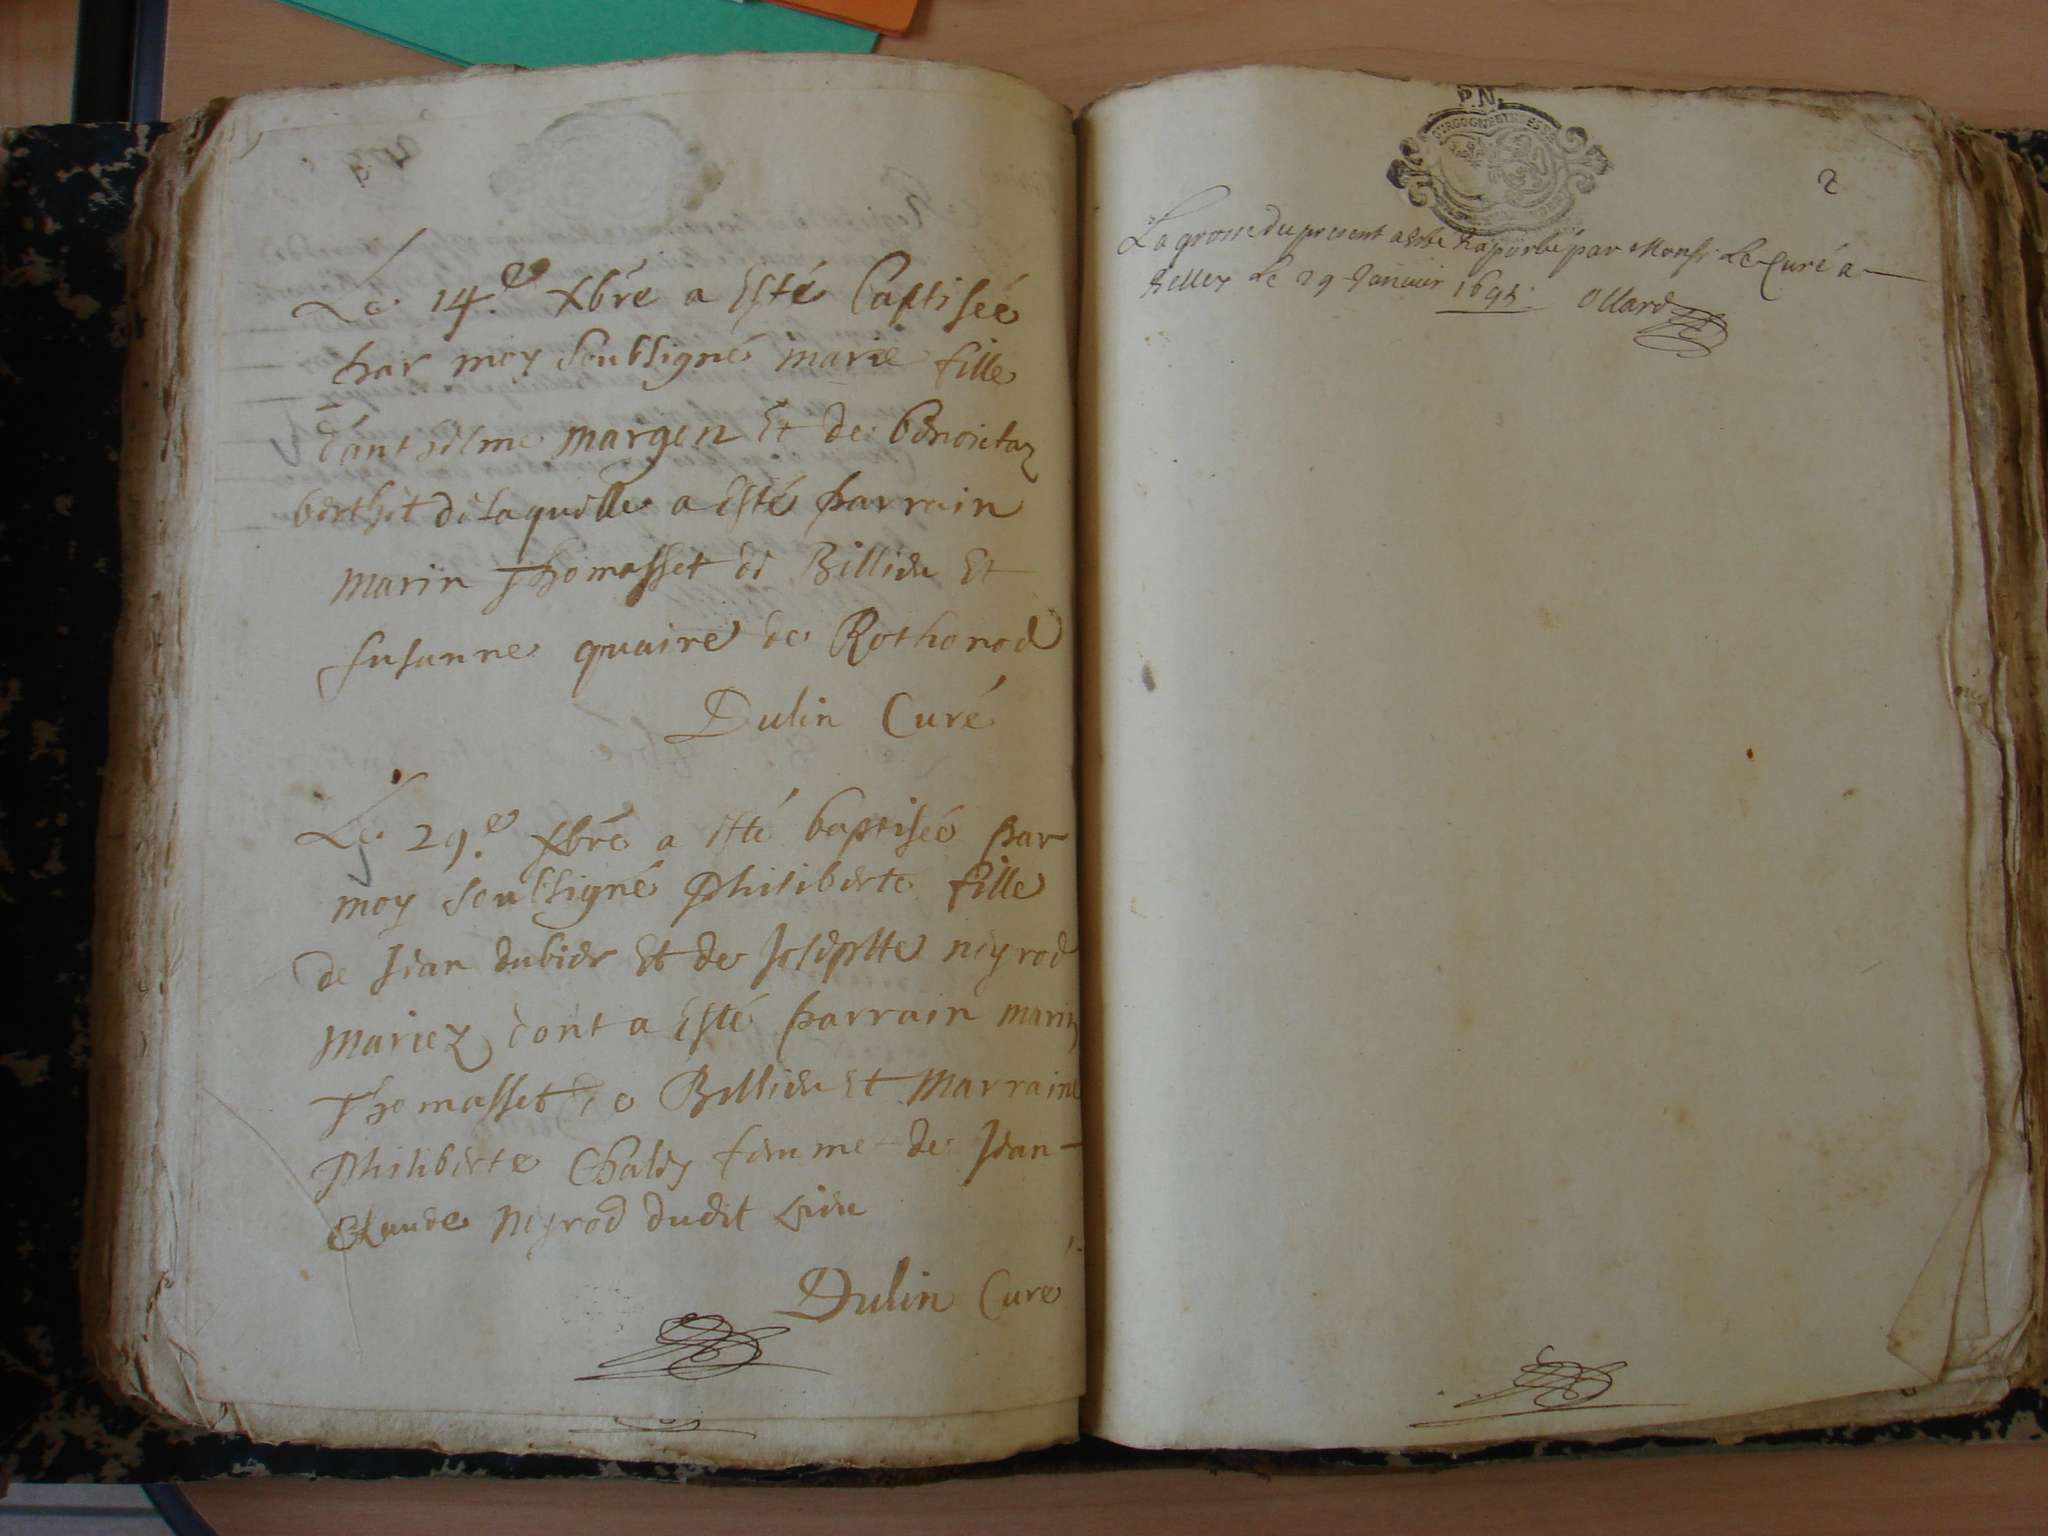 Le 14.e xbre a esté baptiseé
par moy soubsigné marie fille
d'anthelme margen et de benoite
berthet de laquelle a esté parrain
marin Thomasset de Billieu et
susanne quaire de Rothonod
Dulin Curé
Le 29.e xbre a esté baptiseé par
moy soubsigné philiberte fille
de Jean dubier et de Josephte neyrod
mariez dont a esté parrain marin
Thomasset de Billieu et marraine
philiberte Chaley femme de Jean
Claude neyrod dudit lieu
Dulin Curé
P.N.
2
La grosse du present a este raporté par Monsr. Le Curé a
belley Le 29 Janvier Ollard